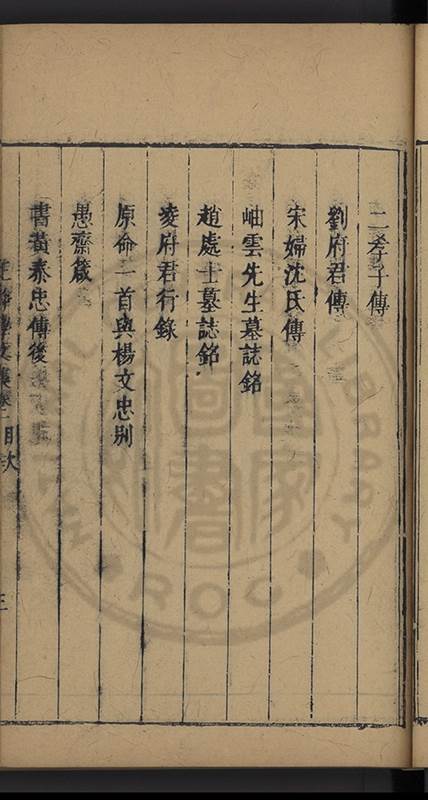 二孝子傳
劉府君傳
宋婦沈氏傳
岫雲先生墓誌銘
趙處士墓誌銘
凌府君行錄
原命一首與楊文忠別
愚齋箴
書黃泰忠傳後
目次
三